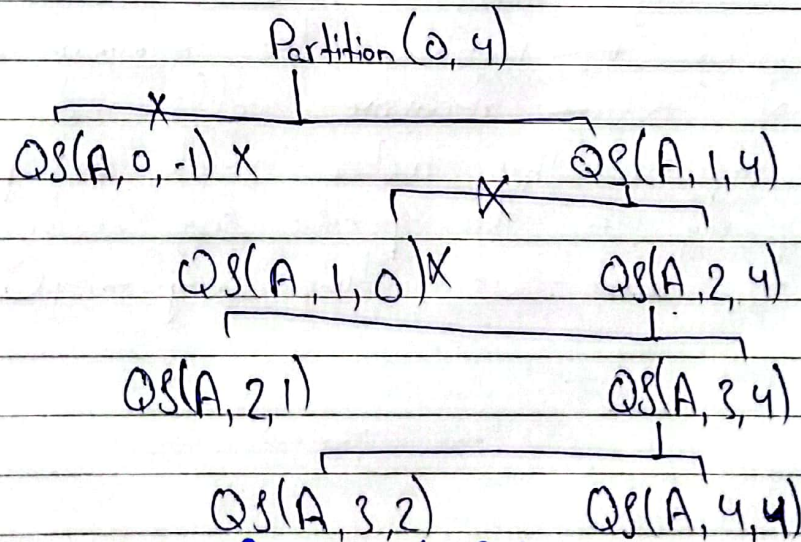 Partition (0, 4)
QS(A, 0, -1) X QS(A, 1, 4)
QS(A, 1, 0) X QS(A, 2, 4)
QS(A, 2, 1) QS(A, 3, 4)
QS(A, 3, 2) QS(A, 4, 4)